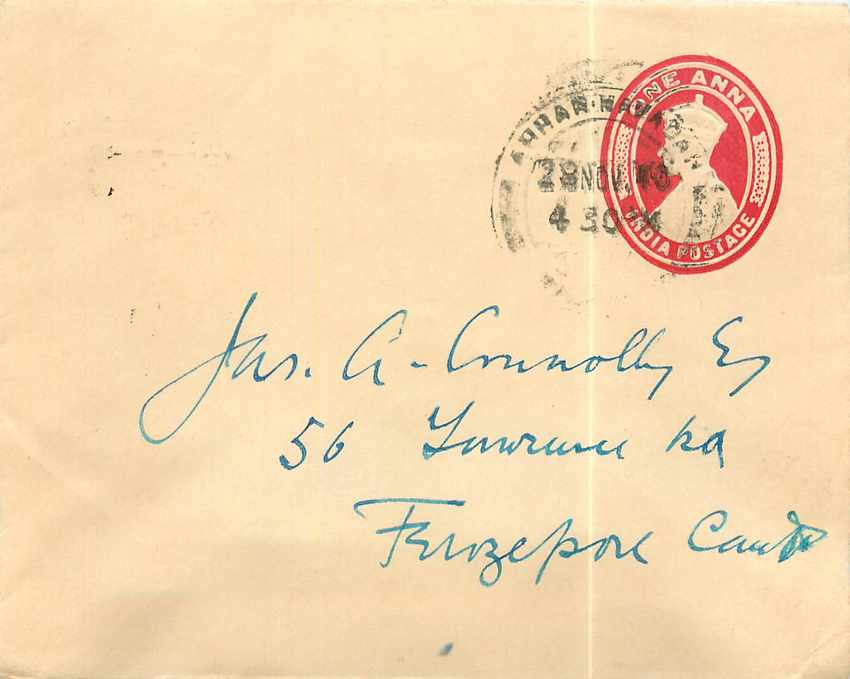 ONE ANNA
INDIA POSTAGE
28 NOV. 40
4 30 PM
Jas. A. Connolly Esq
56 Lawrence Rd
Ferozepore Cantt